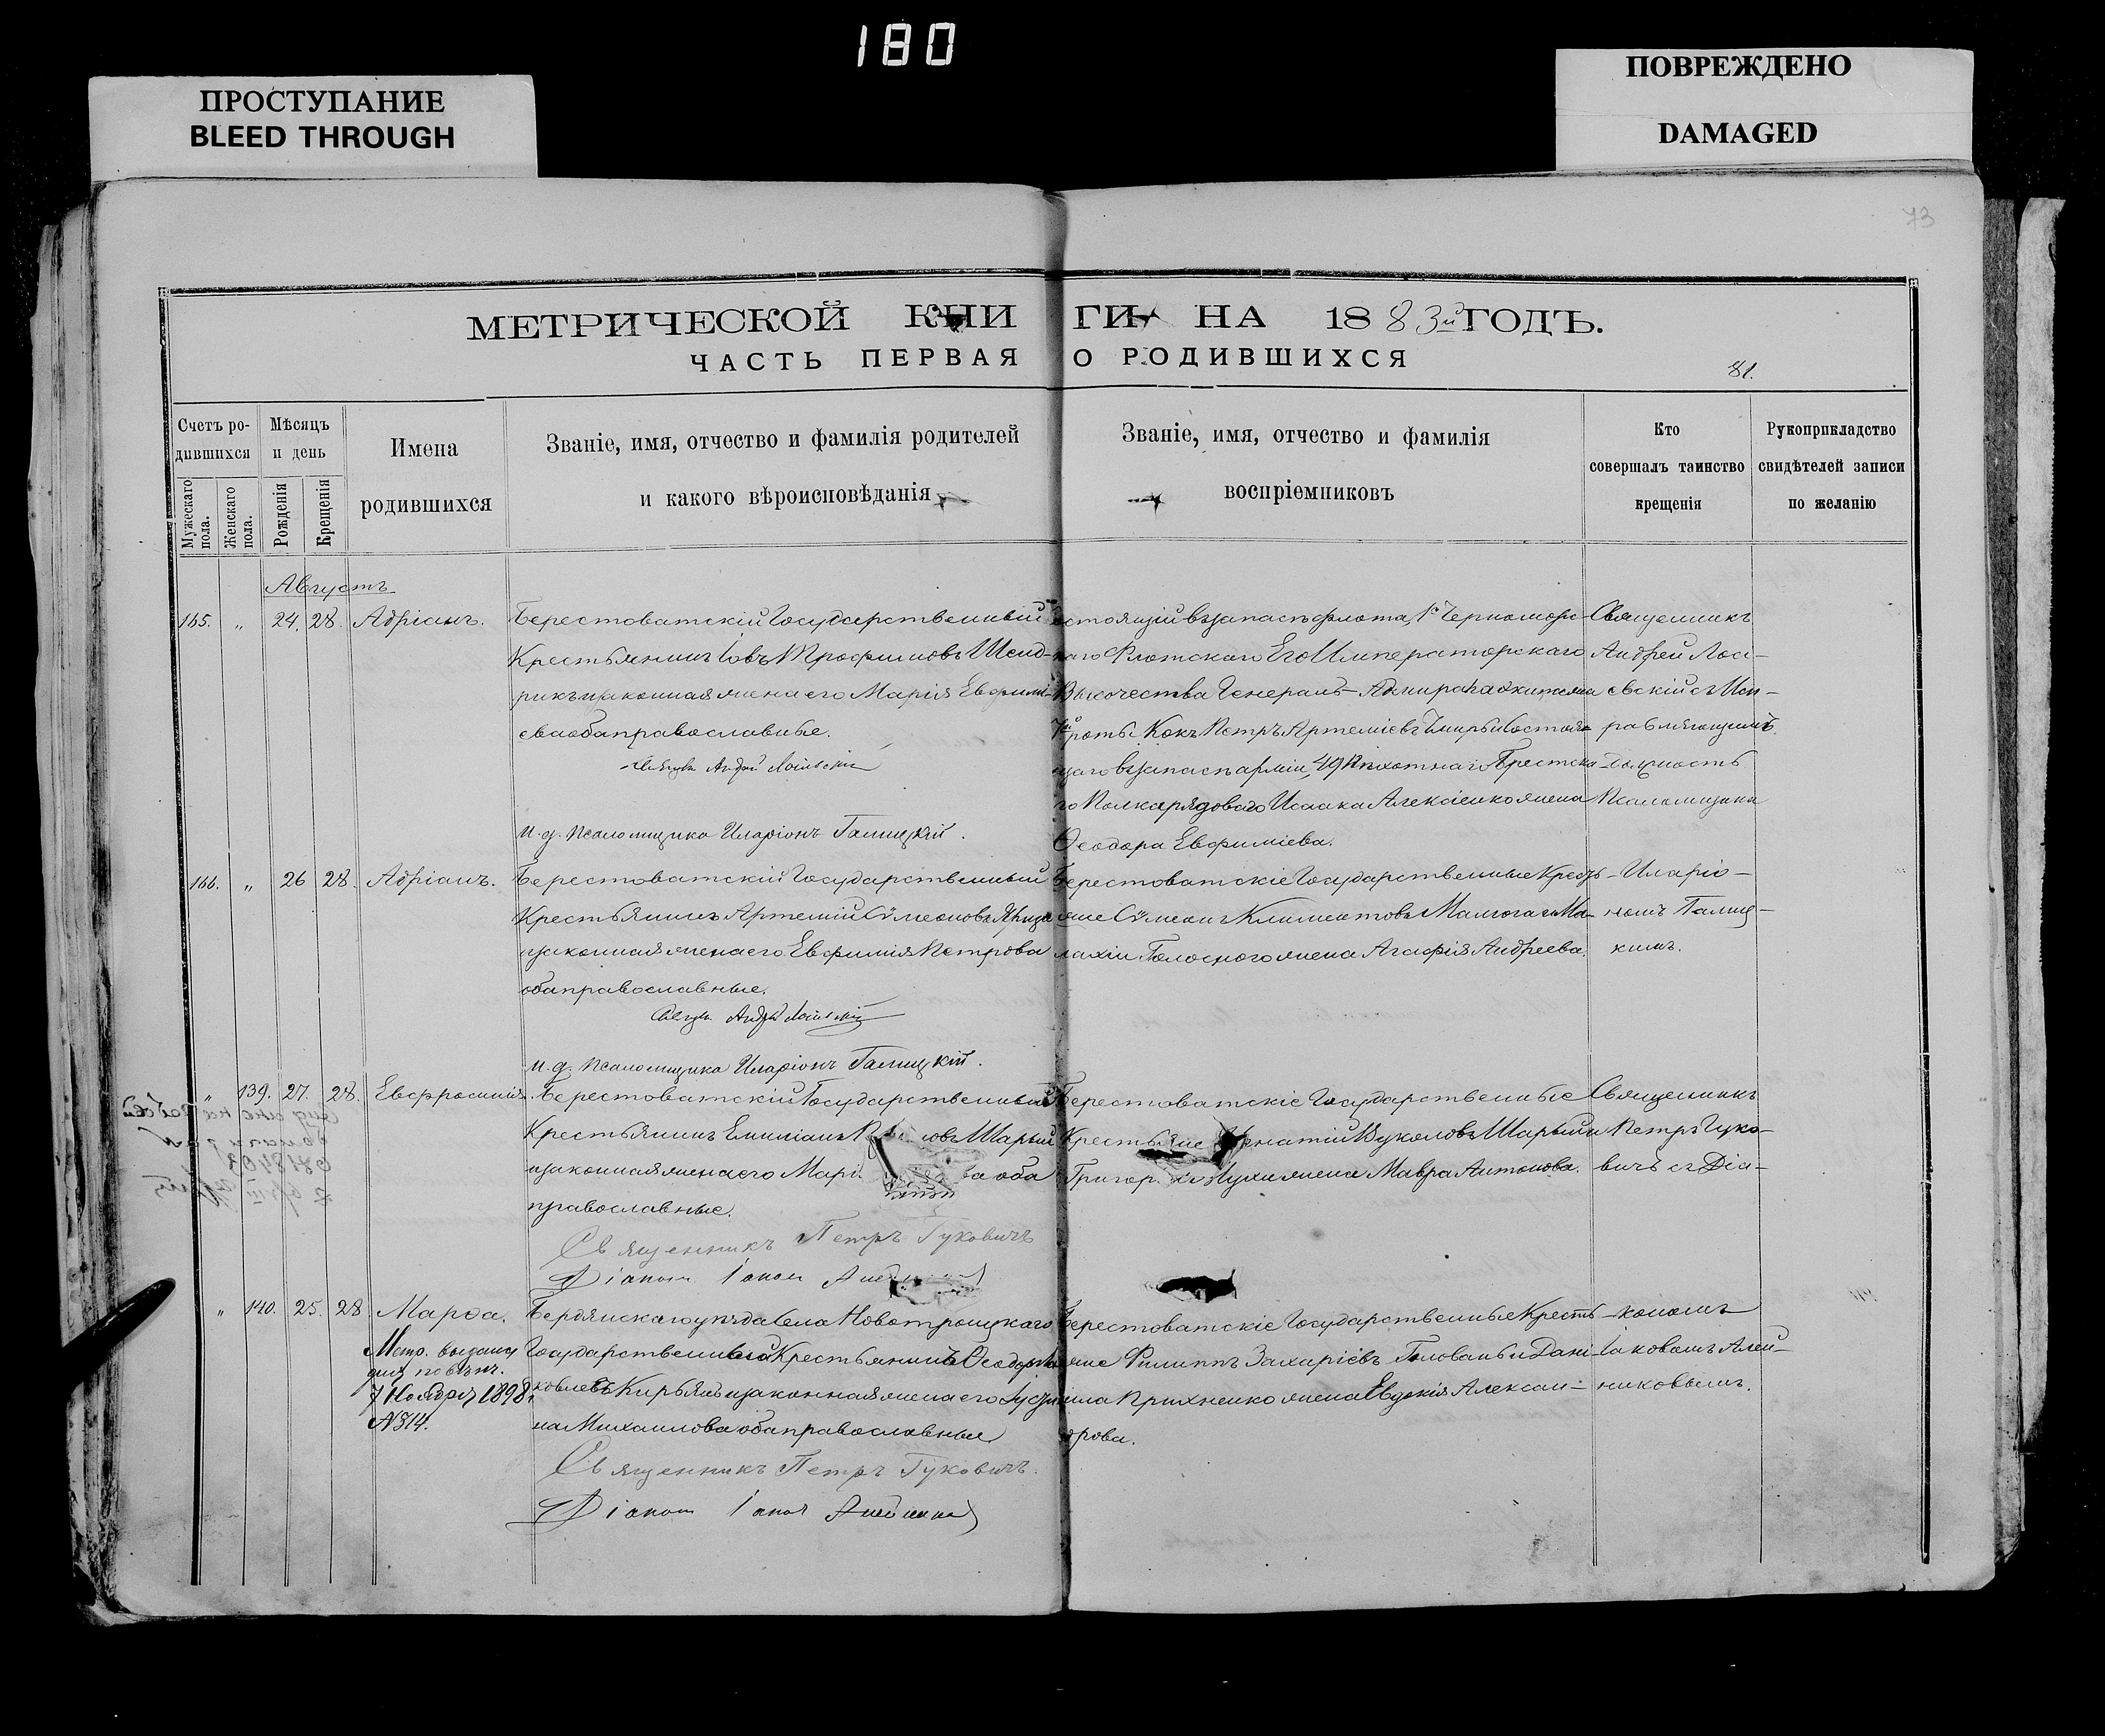 180
ПРОСТУПАНИЕ
BLEED THROUGH
ПОВРЕЖДЕНО
DAMAGED
73
МЕТРИЧЕСКОЙ КНИГИ НА 1883й ГОДЪ.
ЧАСТЬ ПЕРВАЯ О РОДИВШИХСЯ
81.
Счетъ ро-
дившихся
Мужескаго пола.
Женскаго пола.
Мѣсяцъ
и день
Рожденія
Крещенія
Имена
родившихся
Званіе, имя, отчество и фамилія родителей
и какого вѣроисповѣданія
Званіе, имя, отчество и фамилія
воспріемниковъ
Кто
совершалъ таинство
крещенія
Рукоприкладство
свидѣтелей записи
по желанію
Августъ
165. „ 24. 28. Адріанъ.
Берестоватскій Государственный
Крестьянинъ Іовъ Трофимовъ Шенд-
рикъ и законная жена его Марія Евфимі-
ева оба православные.
Андрей
и. д. Псаломщика Иларіонъ Галицкій.
состоящій въ запасѣ флота, 1го Черноморс-
каго Флотскаго Его Императорскаго
Высочества Генералъ-Адмирала экипажа
7й роты Кокъ Петръ Артеміевъ и состоя-
щаго въ запасѣ арміи, 49 Пѣхотнаго Брестска-
го Полка рядоваго Исаака Алексіенко жена
Ѳеодора Евфиміева.
Священникъ
Андрей Лос-
евскій съ Исп-
равляющимъ
Должность
Псаломщика
166. „ 26 28. Адріанъ.
Берестоватскій Государственный
Крестьянинъ Артемій Сѵмеоновъ
и законная жена его Евфимія Петрова
оба православные.
Андрей
и. д. Псаломщика Иларіонъ Галицкій.
Берестоватскіе Государственные Кресть-
яне Сѵмеонъ Климентовъ и Ма-
лахіи Голоснаго жена Агафія Андреева.
Иларіо-
номъ Галиц-
кимъ.
„ 139. 27. 28. Евфросинія.
Берестоватскій Государственный
Крестьянинъ Емиліанъ
и законная жена его Марі ва оба
православные.
Священникъ Петръ Гуковичъ
Діаконъ Іаковъ
Берестоватскіе Государственные
Крестьяне Игнатій Вуколовъ и
Григор жена Мавра Антонова.
Священникъ
Петръ Гуко-
вичъ съ Діа-
„ 140. 25. 28. Марѳа.
Метр. выдана
7 Ноября 1898 г.
№ 314.
Бердянскаго уѣзда Села Новотроицкаго
Государственный Крестьянинъ Ѳеодоръ Я-
ковлевъ и законная жена его Іусти-
на Михаилова оба православные
Священникъ Петръ Гуковичъ.
Діаконъ Іаковъ
Берестоватскіе Государственные Кресть-
яне Филиппъ Захаріевъ и Дані-
ила жена Евдокія Алексан-
дрова.
кономъ
Іаковомъ Алей-
никовымъ.